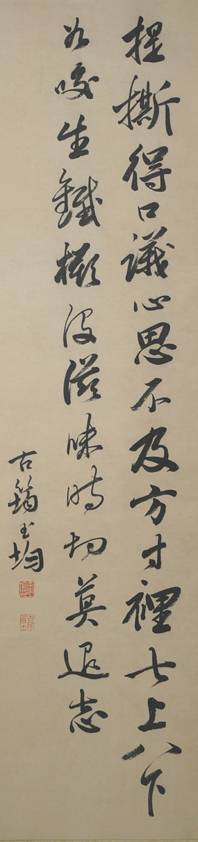 提撕得口議心思不及方寸裡七上八下
如咬生鐵橛沒滋味時切莫退志
古筠玉均